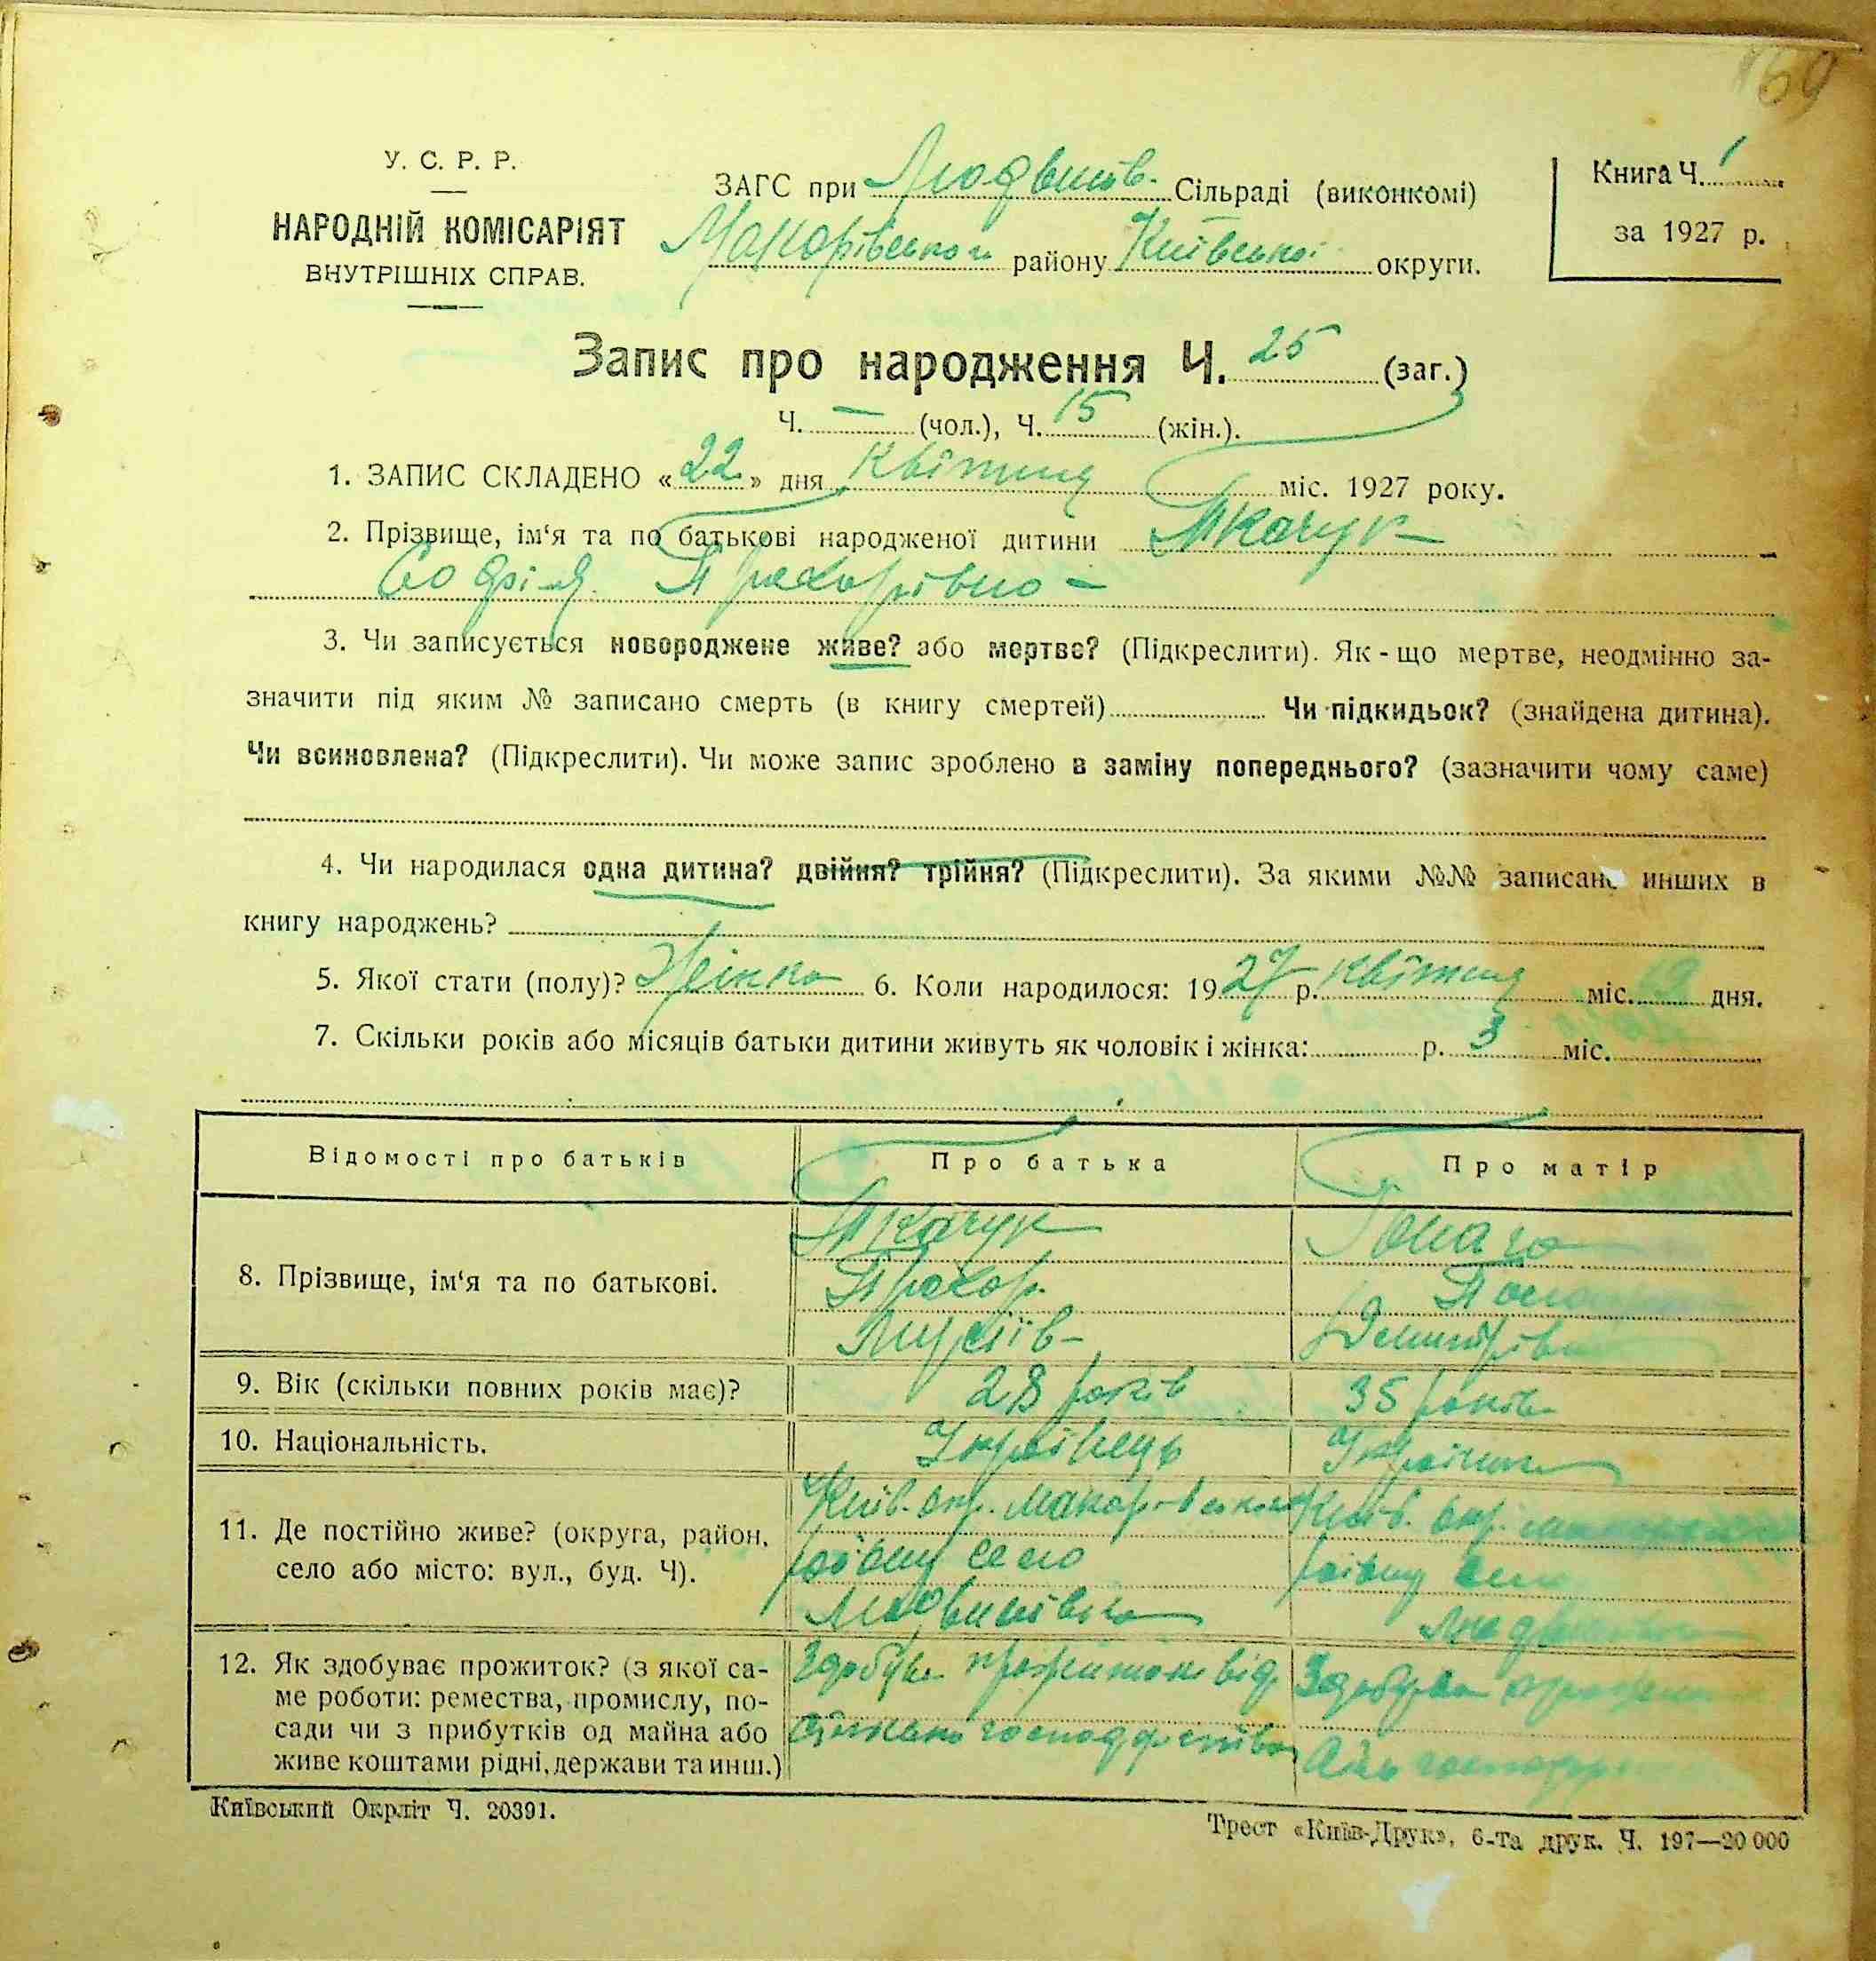 69
У. С. Р. Р.
НАРОДНІЙ КОМІСАРІЯТ
ВНУТРІШНІХ СПРАВ.
ЗАГС при Людвинів. Сільраді (виконкомі)
Макарівського району Київської округи.
Книга Ч. 1
за 1927 р.
Запис про народження Ч. 25 (заг.)
Ч. — (чол.), Ч. 15 (жін.).
1. ЗАПИС СКЛАДЕНО «22» дня Квітня міс. 1927 року.
2. Прізвище, ім'я та по батькові народженої дитини Ткачук
Софія Прохорівна
3. Чи записується новороджене живе? або мертве? (Підкреслити). Як-що мертве, неодмінно за-
значити під яким № записано смерть (в книгу смертей) Чи підкидьок? (знайдена дитина).
Чи всиновлена? (Підкреслити). Чи може запис зроблено в заміну попереднього? (зазначити чому саме)
4. Чи народилася одна дитина? двійня? трійня? (Підкреслити). За якими №№ записано инших в
книгу народжень?
5. Якої стати (полу)? Жінка 6. Коли народилося: 1927 р. Квітня міс. дня.
7. Скільки років або місяців батьки дитини живуть як чоловік і жінка: р. 3 міс.
Відомості про батьків Про батька Про матір
8. Прізвище, ім'я та по батькові.
Ткачук
Прохор
Мусіїв
Дмитрівн
9. Вік (скільки повних років має)? 28 років 35 років
10. Національність. Українець Українка
11. Де постійно живе? (округа, район,
село або місто: вул., буд. Ч).
Київ. окр. Макарівського
району село
Людвинівка
Київ. окр.
району село
12. Як здобуває прожиток? (з якої са-
ме роботи: ремества, промислу, по-
сади чи з прибутків од майна або
живе коштами рідні, держави та инш.)
Здобува прожиток від
сільського господарства
Здобува
господар
Київський Окрліт Ч. 20391.
Трест «Київ-Друк», 6-та друк. Ч. 197—20 000